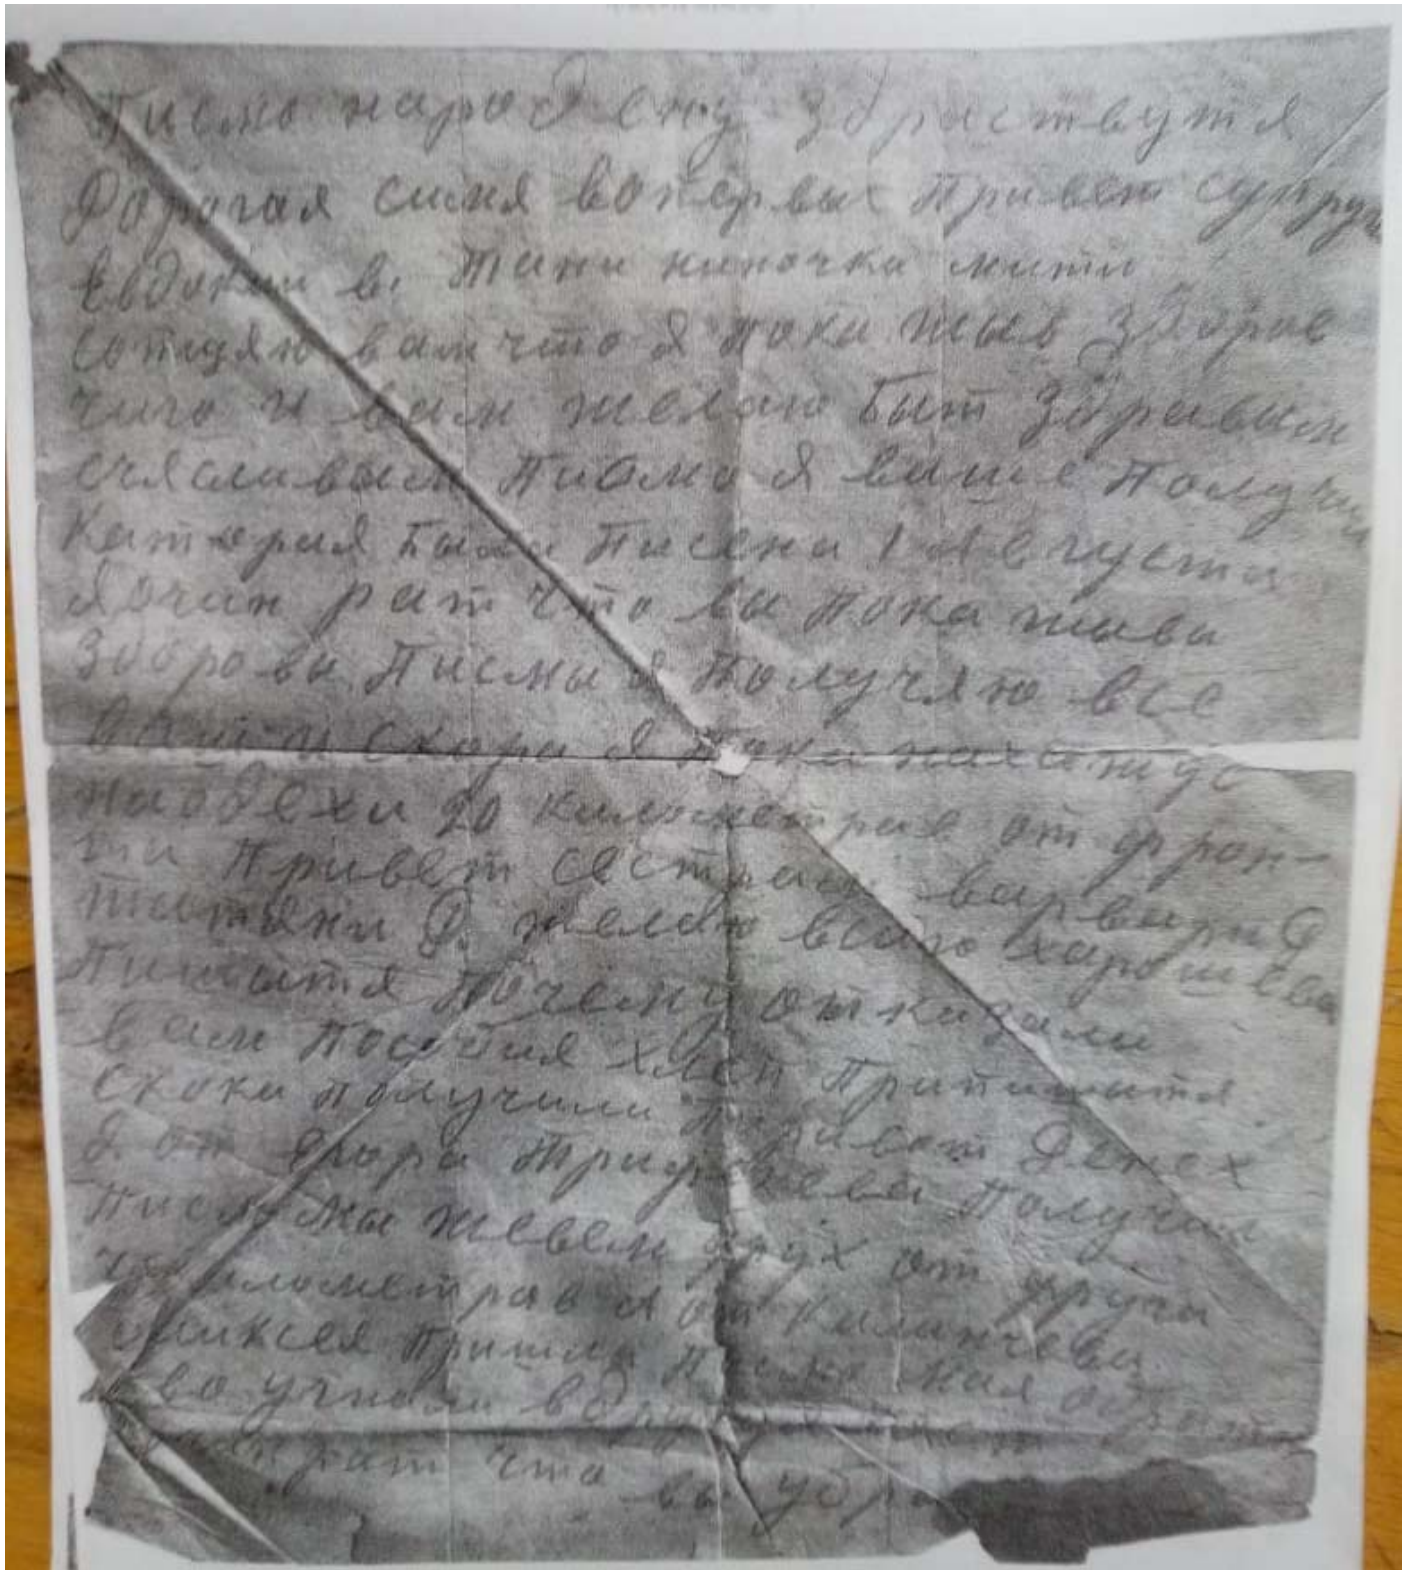 Писмо народ ену здраствутя
Дорогая симя вопервых привет супруги
Евдокии в. Тани ниночки мити
сопщяю вам что я пока жыв здоров
чиго и вам желаю быт здравым
счясливым Писмо я ваше получил
каторая была писена 1 Августа
я очин рат что вы пока живы
здоровы писмы я получяю все
ваши скора я пока нахажус
наодехи 20 километрав от фрон-
та Привет сестрам варвари д
татяни д. желаю всиго харошева
пишытя почему отказали
вам пособия хлеп припишытя
скоки получили привет денех
я от егора получил
писмо мы жевем друх от друга
километрав я от
Пришло писмо
ево угнали
рат что вы